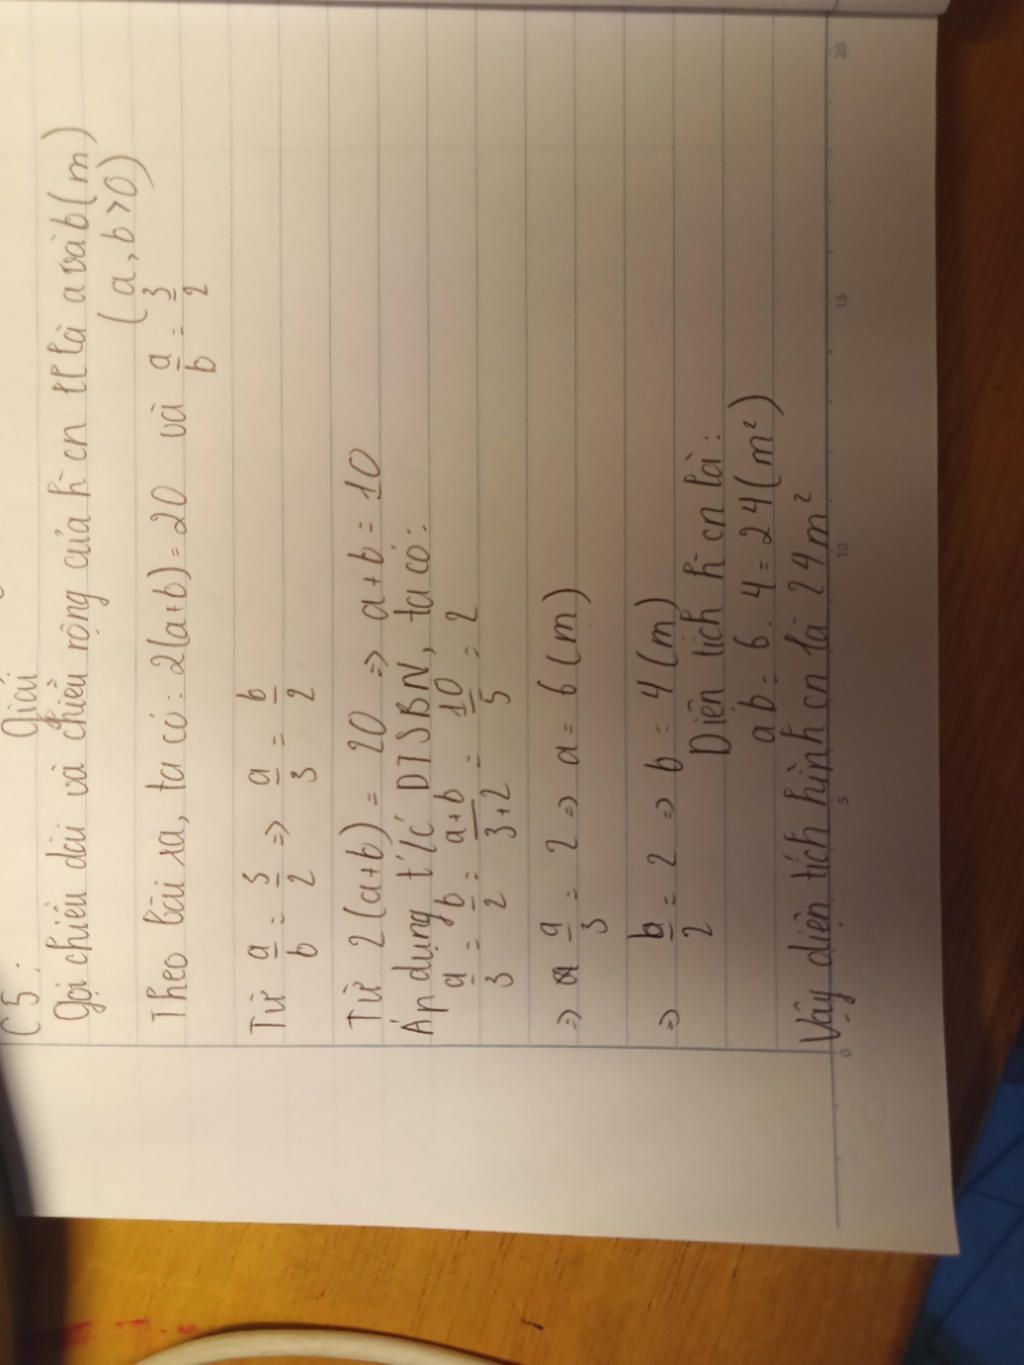 C5:
Giải
Gọi chiều dài và chiều rộng của h cn lll à a và b (m)
(a, b > 0)
Theo bài ra, ta có: 2(a+b) = 20 và a/b = 3/2
Từ a/b = 3/2 => a/3 = b/2
Từ 2(a+b) = 20 => a+b = 10
Áp dụng t/c DTSBN, ta có:
a/3 = b/2 = a+b/3+2 = 10/5 = 2
=> a/3 = 2 => a = 6 (m)
=> b/2 = 2 => b = 4 (m)
Diện tích h cn là:
ab = 6 . 4 = 24 (m²)
Vậy diện tích hình cn là 24 m²
0 5 10 15 20